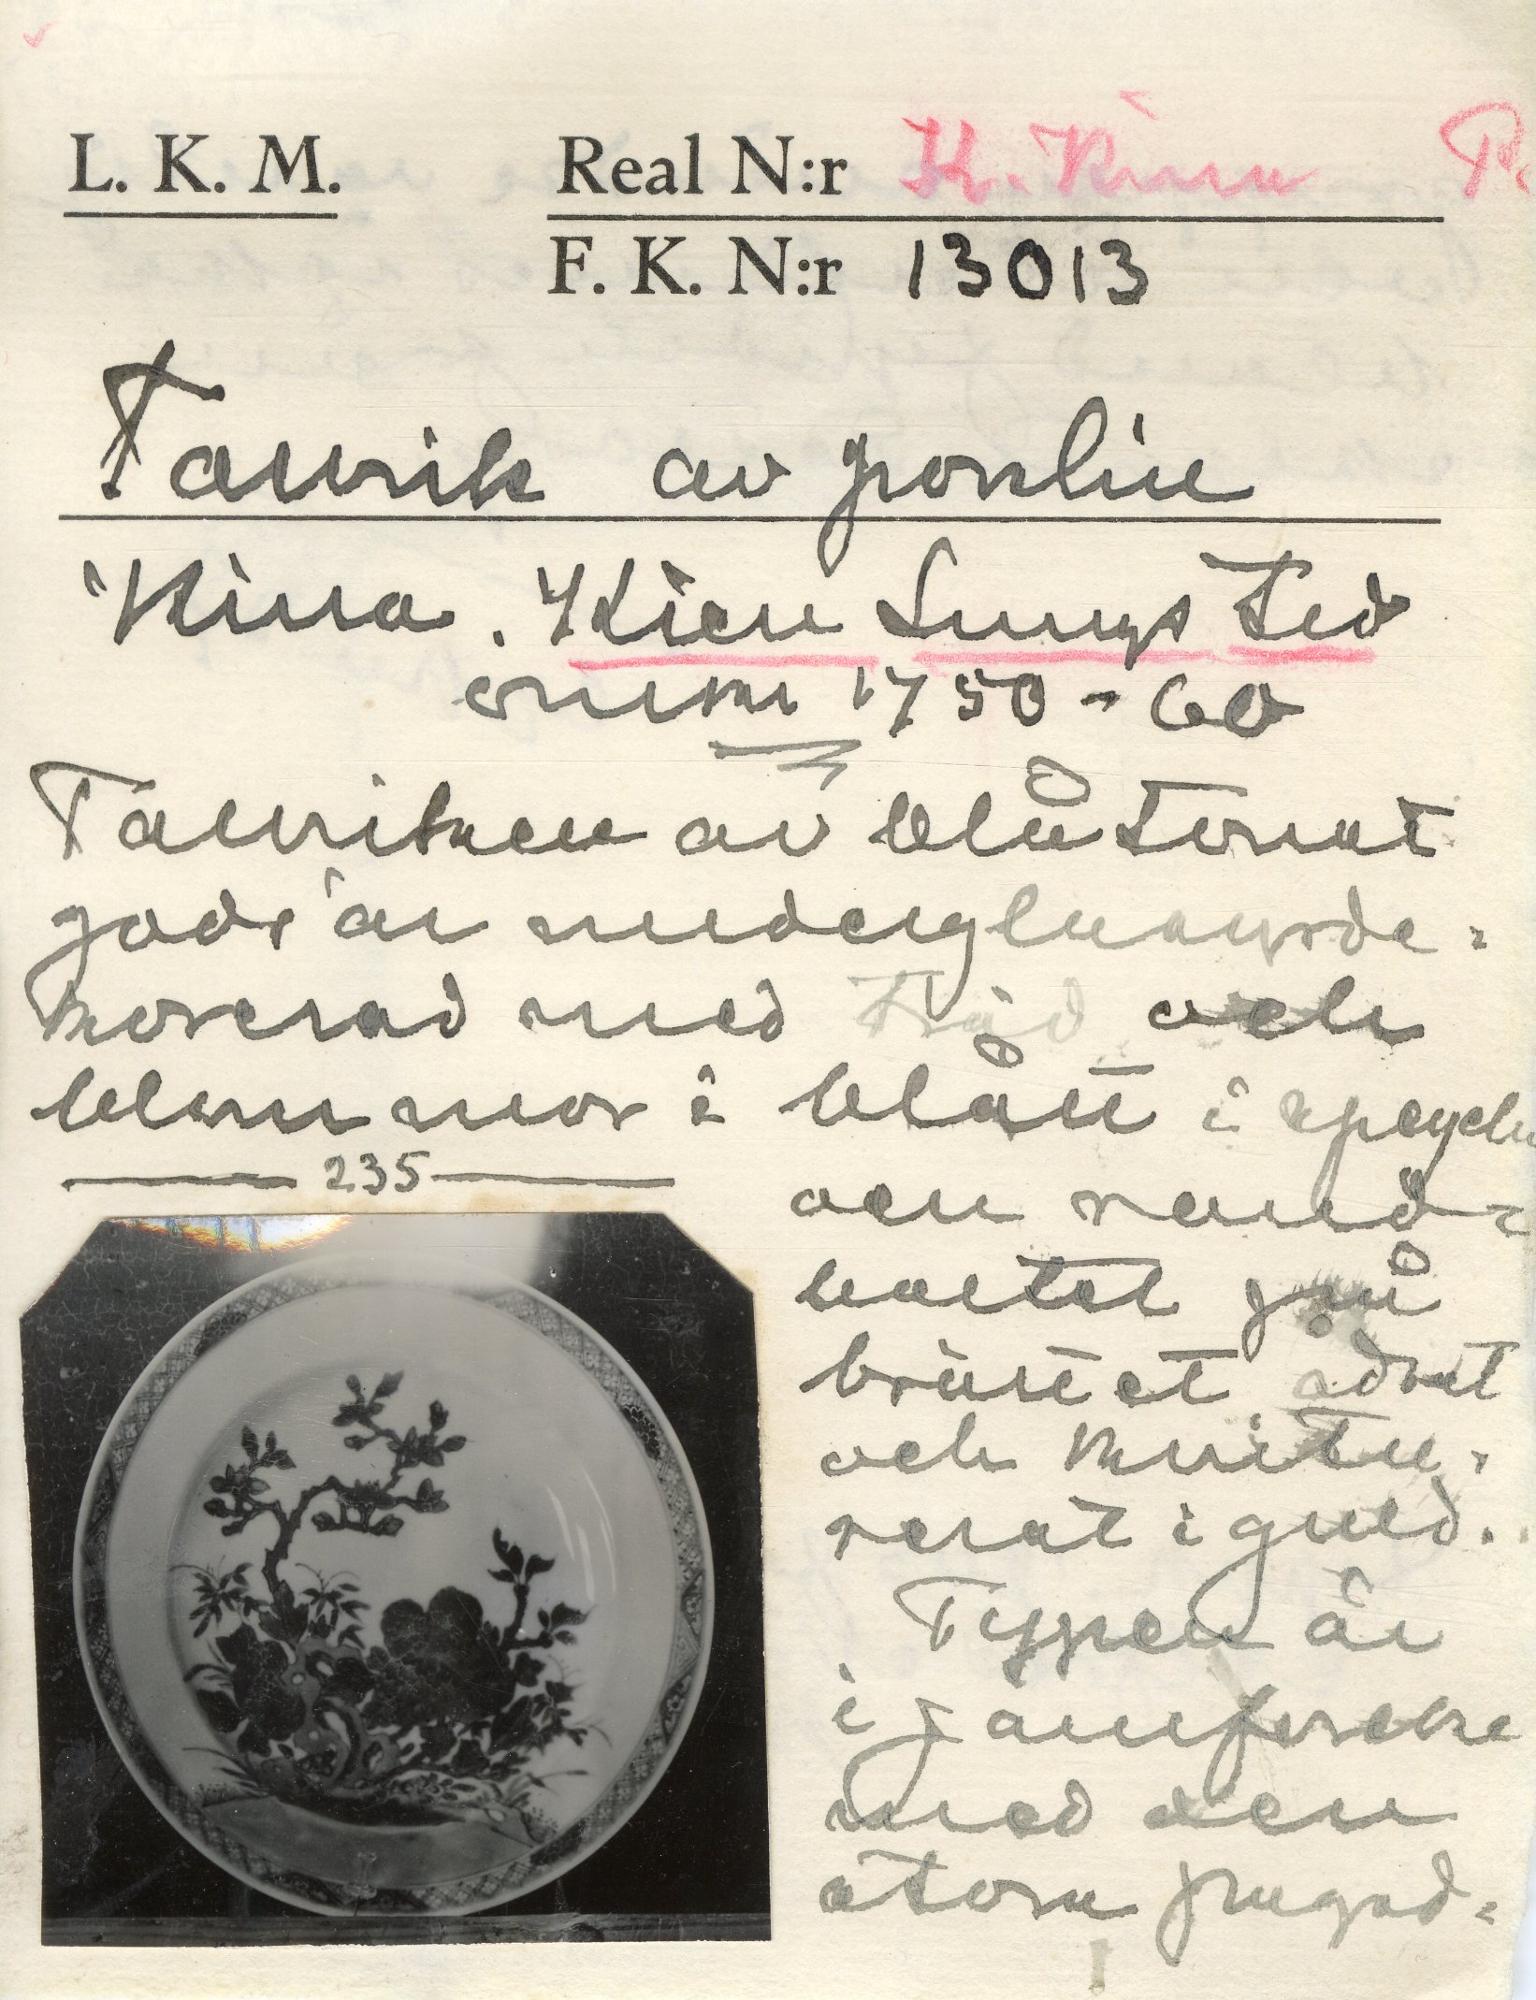 L. K. M. Real N:r K. Kina
F. K. N:r 13013
Tallrik av porslin
Kina. Kien Lungs tid
omkr 1750-60
Tallriken av blåtonat
gods är underglasyrde-
korerad med träd och
blommor i blått i spegeln
235
och rand-
bården på
brättet ådrat
och
rerat i guld.
Typen är
i jämförelse
med den
stora